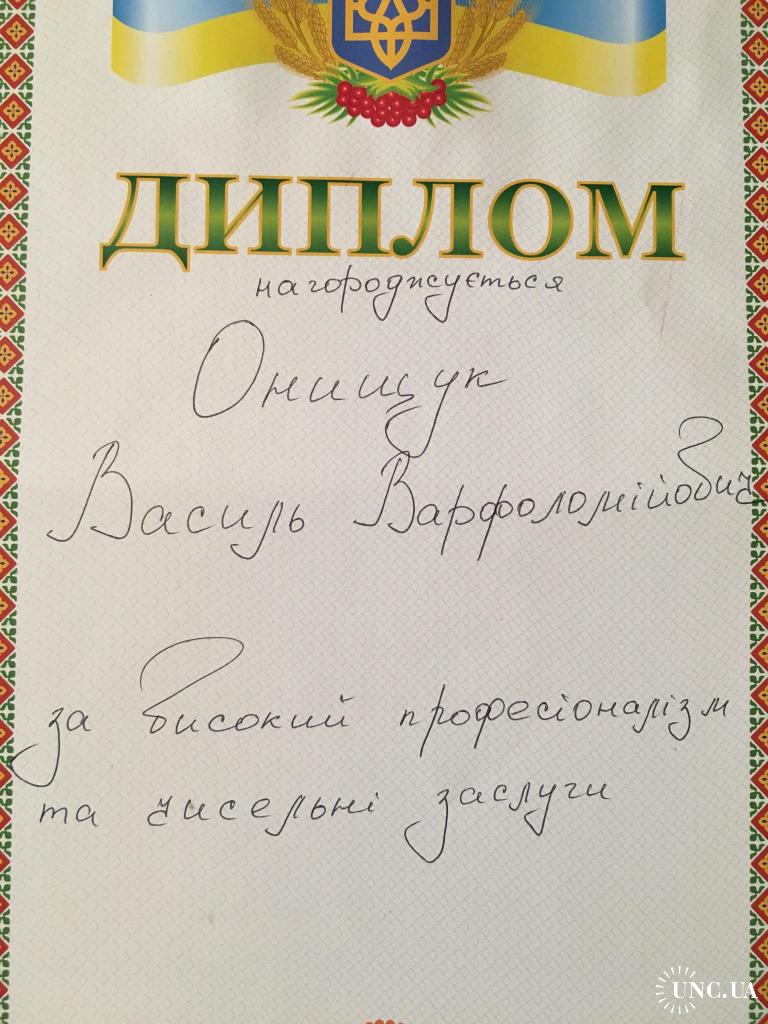 ДИПЛОМ
нагороджується
Онищук
Василь Варфоломійович
за високий професіоналізм
та чисельні заслуги
UNC.UA